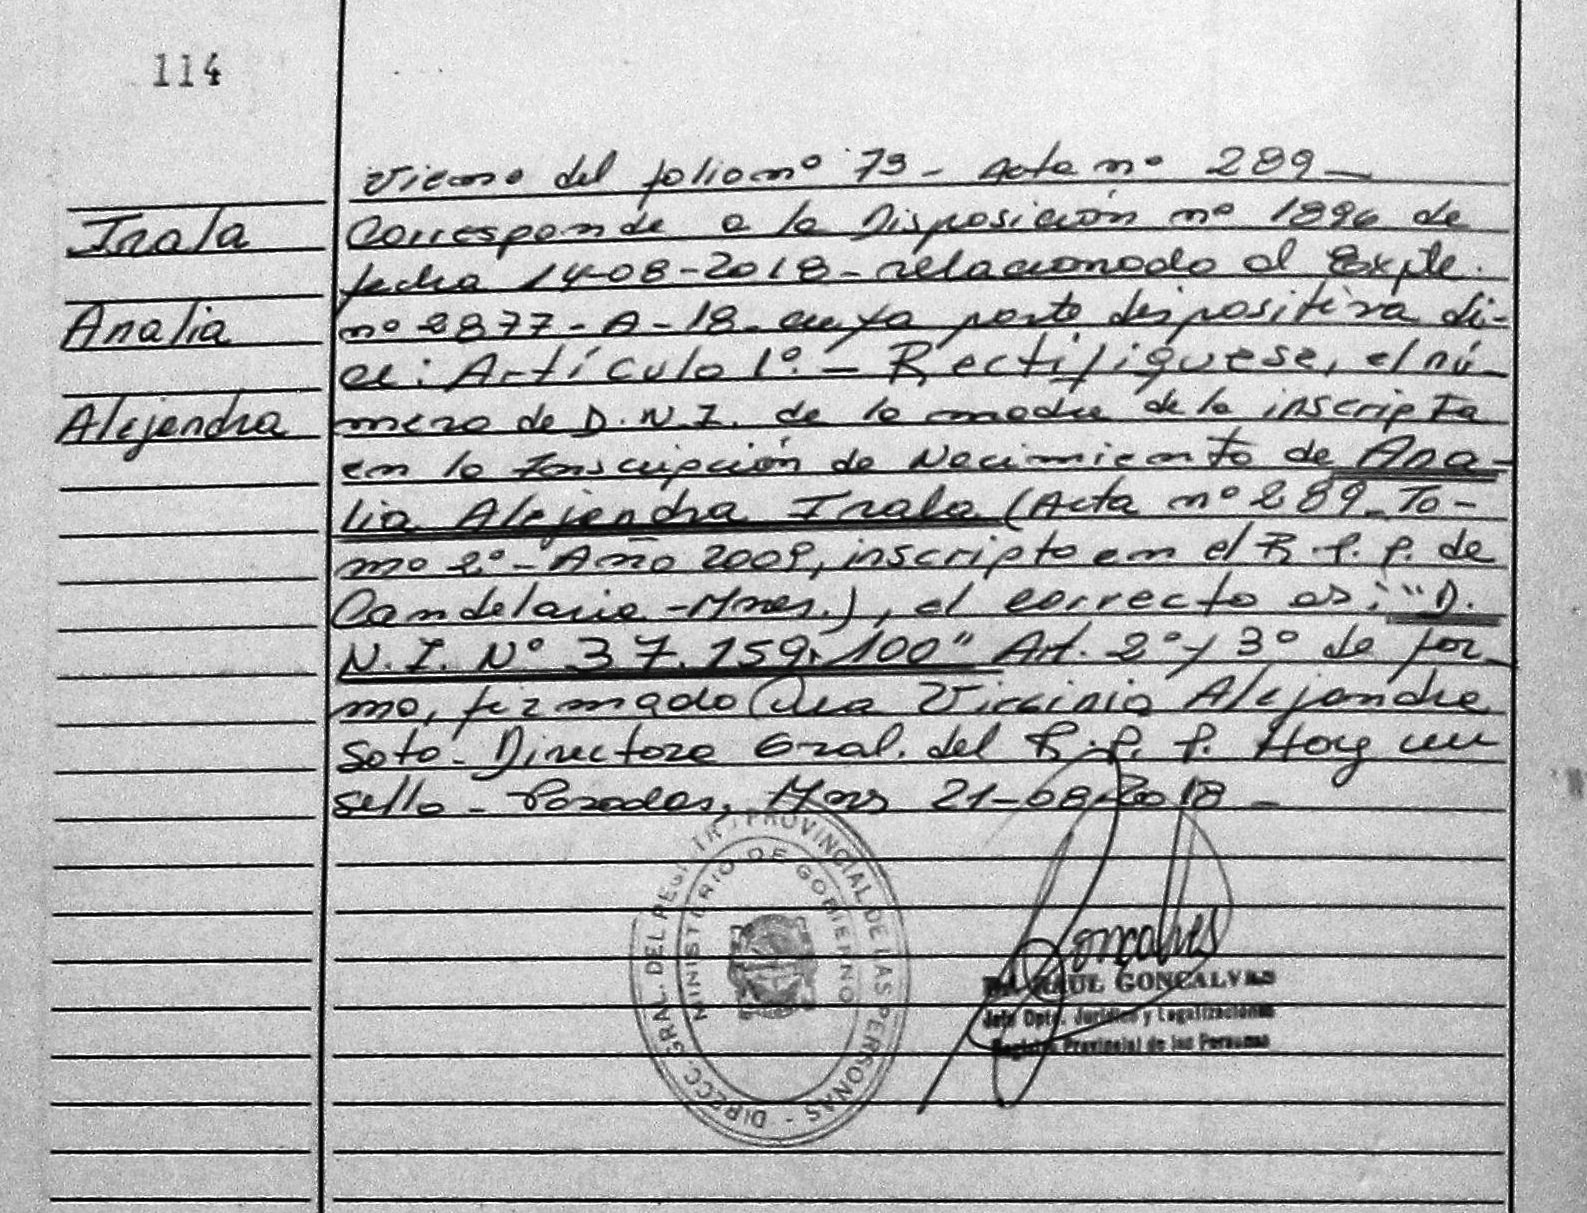 114
Viene del folio nº 73 - Acta nº 289 —
Irala
Corresponde a la Disposición nº 1896 de
fecha 14-08-2018 - relacionado al Expte.
Analia
nº 2877 - A - 18 - cuya parte dispositiva di-
ce: Artículo 1º. - Rectifíquese, el nú-
Alejandra
mero de D.N.I. de la madre de la inscripta
en la Inscripción de Nacimiento de Ana-
lia Alejandra Irala (Acta nº 289 - To-
mo 2º - Año 2009, inscripto en el R.P.P. de
Candelaria - Mnes.), el correcto es: "D.
N.I. Nº 37.159.100" Art. 2º y 3º de for-
ma, firmado Dra Virginia Alejandra
Soto - Directora Gral. del R.P.P. Hay un
sello - Posadas, Mnes 21-08-2018 -
DIRECC. GRAL. DEL REGISTR. PROVINCIAL DE LAS PERSONAS -
MINISTERIO DE GOBIERNO
Goncalves
RAUL GONCALVES
Jefe Dpto. Jurídico y Legalizaciones
Registro Provincial de las Personas